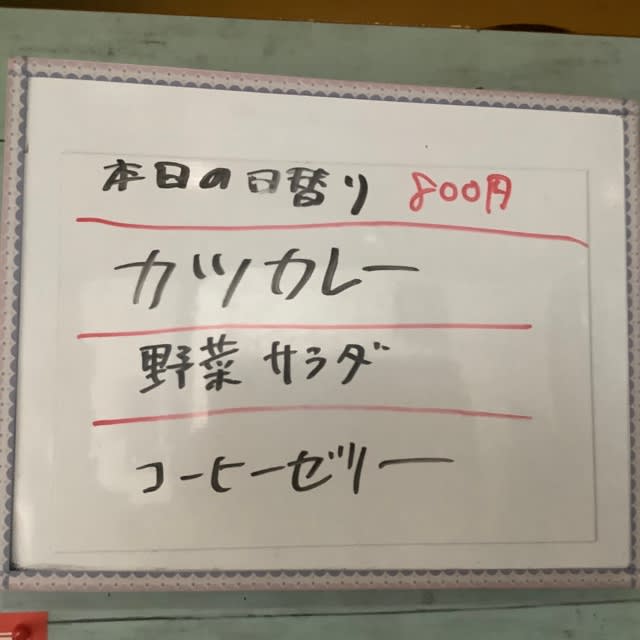 本日の日替り 800円
カツカレー
野菜サラダ
コーヒーゼリー